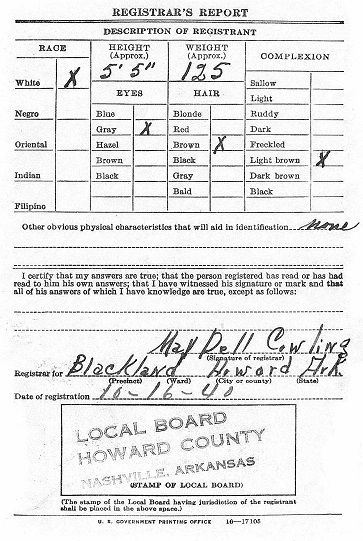 REGISTRAR'S REPORT
DESCRIPTION OF REGISTRANT
RACE HEIGHT (Approx.) WEIGHT (Approx.) COMPLEXION
5' 5" 125
White X Sallow
EYES HAIR Light
Negro Blue Blonde Ruddy
Gray X Red Dark
Oriental Hazel Brown X Freckled
Brown Black Light brown X
Indian Black Gray Dark brown
Bald Black
Filipino
Other obvious physical characteristics that will aid in identification none
I certify that my answers are true; that the person registered has read or has had
read to him his own answers; that I have witnessed his signature or mark and that
all of his answers of which I have knowledge are true, except as follows:
May Dell Cowling
(Signature of registrar)
Registrar for Blackland Howard Ark
(Precinct) (Ward) (City or county) (State)
Date of registration 10-16-40
LOCAL BOARD
HOWARD COUNTY
NASHVILLE, ARKANSAS
(STAMP OF LOCAL BOARD)
(The stamp of the Local Board having jurisdiction of the registrant
shall be placed in the above space.)
U. S. GOVERNMENT PRINTING OFFICE 16—17105